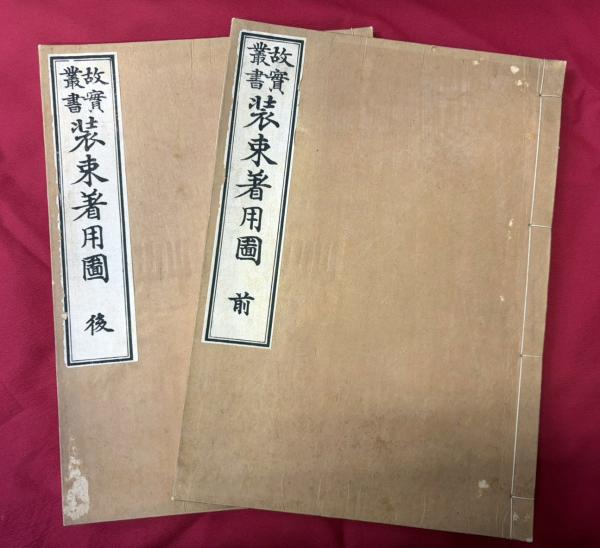 故實
叢書
装束着用圖
前
故實
叢書
装束着用圖
後